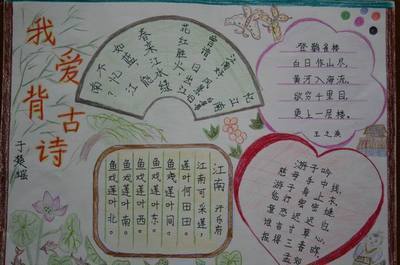 我爱背古诗
江南好
花红胜火
春来江水绿
登鹳雀楼
白日依山尽，
黄河入海流，
欲穷千里目，
更上一层楼。
王之涣
江南
江南可采莲，
莲叶何田田。
鱼戏莲叶间。
鱼戏莲叶东，
鱼戏莲叶西。
鱼戏莲叶南，
鱼戏莲叶北。
游子吟
慈母手中线，
游子身上衣
临行密密缝
意恐迟迟归
谁言寸草心
报得三春晖